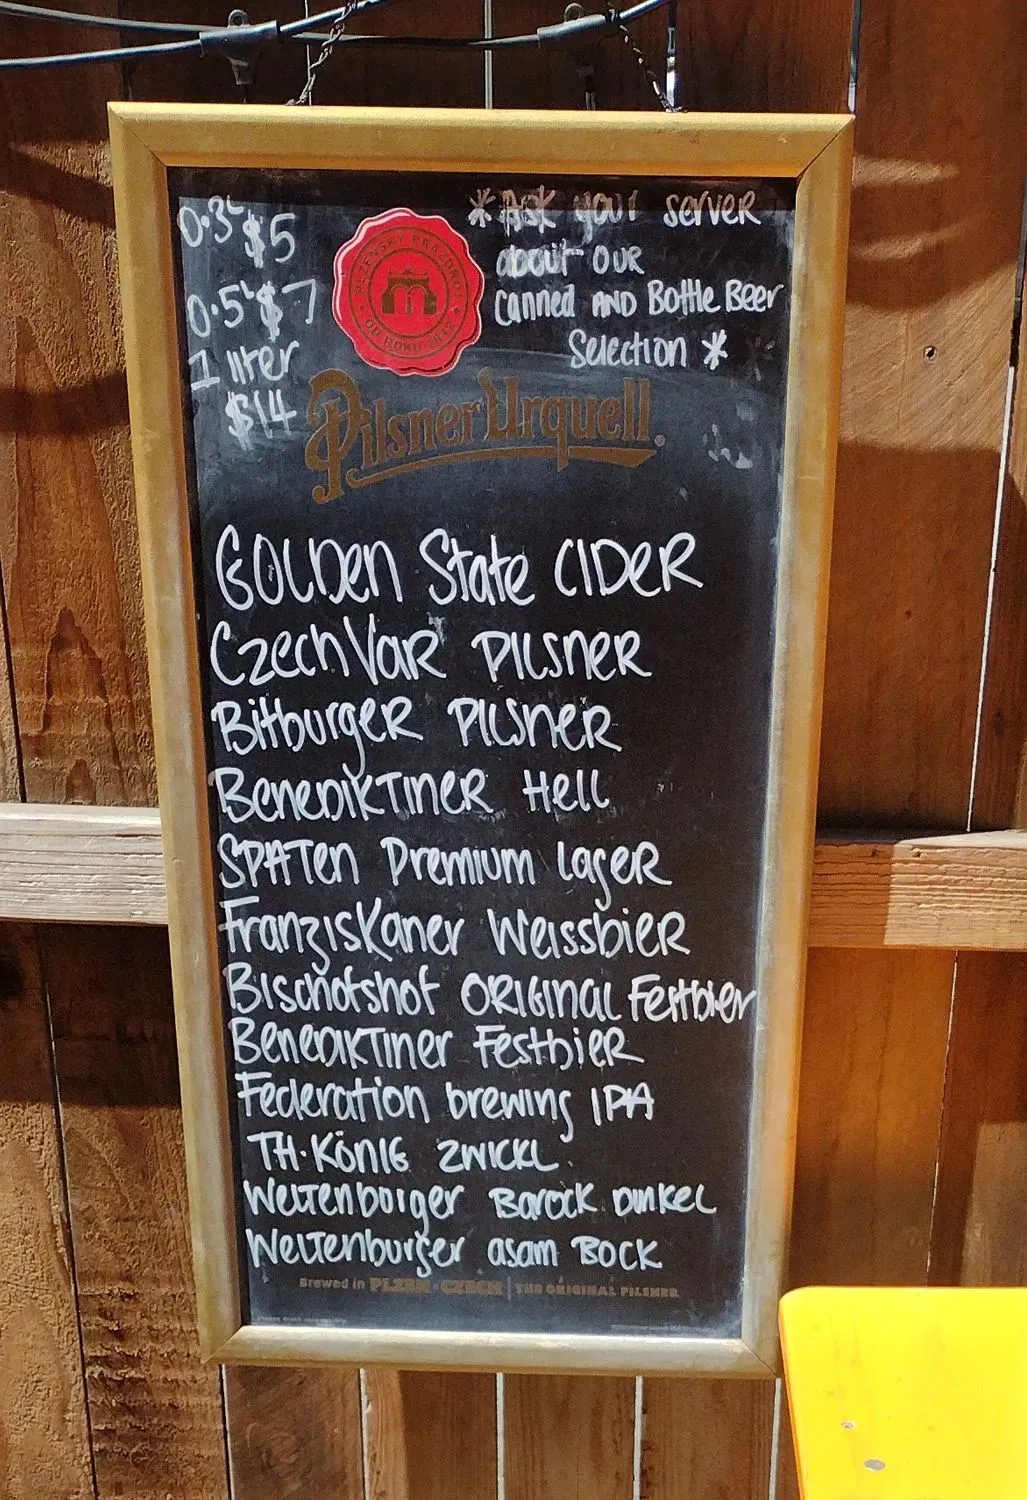 0.3L $5
0.5L $7
1 liter
$14
PLZEŇSKÝ PRAZDROJ
OD ROKU 1842
*Ask your server
about our
canned AND Bottle Beer
Selection *
Pilsner Urquell
GOLDen State CIDER
CzechVar PILSNER
Bitburger PILSNER
BeneDiKTiNER Hell
SPATen Premium lager
Franziskaner Weissbier
Bischofshof ORIGINAL Festbier
BeneDIKTiner Festbier
Federation brewing IPA
TH. König ZWICKL
Weltenburger Barock Dinkel
Weltenburger asam BOCK
Brewed in PLZEN - CZECH | THE ORIGINAL PILSNER